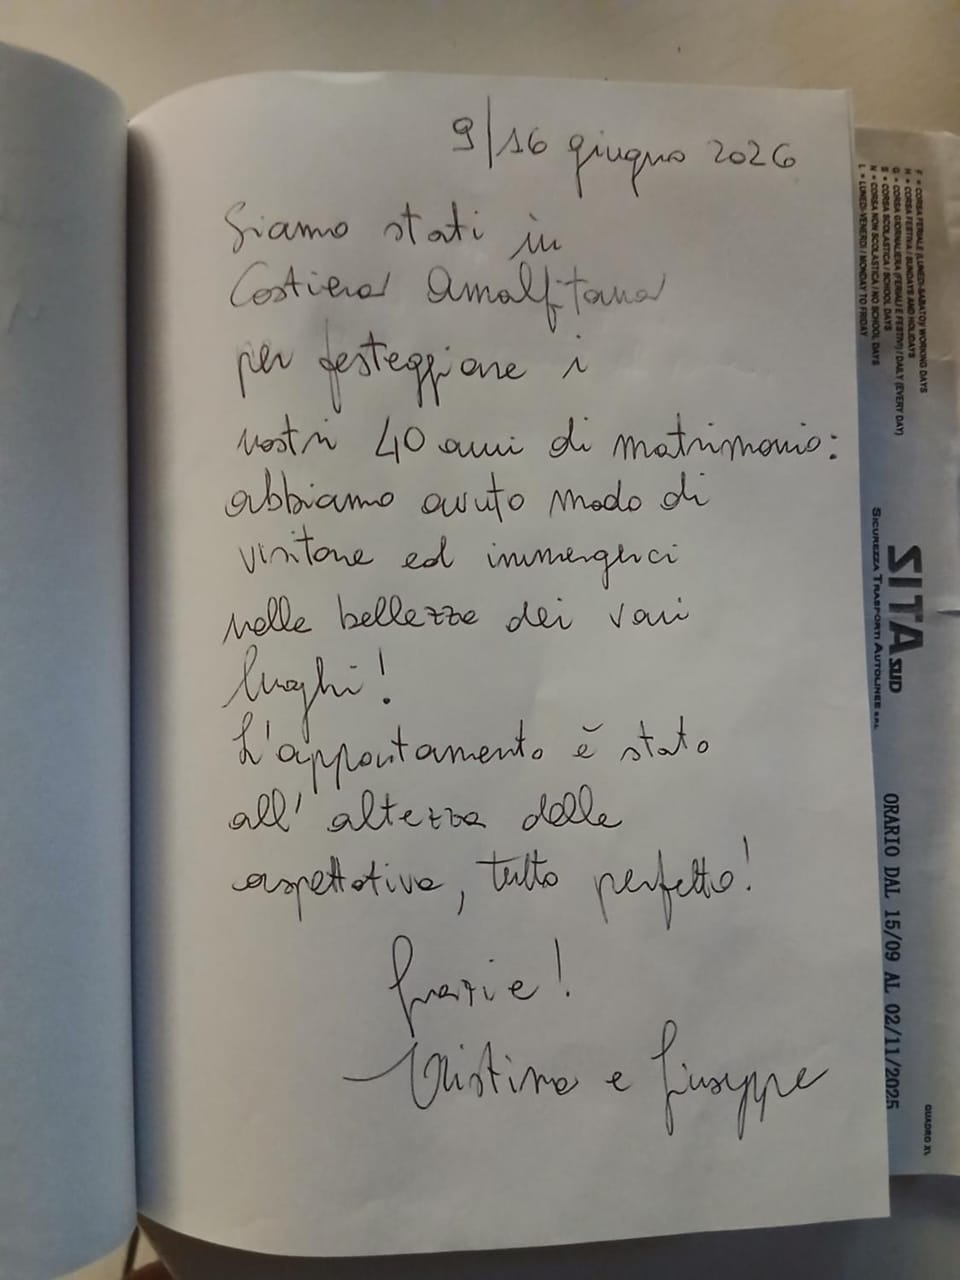 9/16 giugno 2026
Siamo stati in
Costiera Amalfitana
per festeggiare i
nostri 40 anni di matrimonio:
abbiamo avuto modo di
visitare ed immergerci
nelle bellezze dei vari
luoghi!
L'appartamento è stato
all'altezza delle
aspettative, tutto perfetto!
Grazie!
Cristina e Giuseppe
F = CORSA FERIALE (LUNEDI-SABATO)/ WORKING DAYS
H = CORSA FESTIVA / SUNDAYS AND HOLIDAYS
G = CORSA GIORNALIERA (FERIALI E FESTIVI) / DAILY (EVERY DAY)
S = CORSA SCOLASTICA / SCHOOL DAYS
N = CORSA NON SCOLASTICA / NO SCHOOL DAYS
L = LUNEDI-VENERDI / MONDAY TO FRIDAY
SITA SUD
SICUREZZA TRASPORTI AUTOLINEE
ORARIO DAL 15/09 AL 02/11/2025
QUADRO